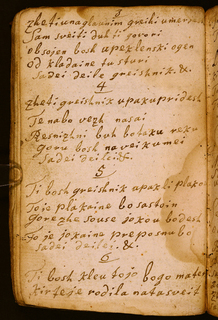 3
zheti vnaglavnim greihi vmerje
Sam sveiti duhti govori
obsojen bosh vpeklenski ogen
Od kladaine tu sturi
Sadei deile greishnik. &.
4
Zheti greishnik vpak vpridesh
Te nabo vezh nasai
Resnizhni buh botaku reku
Goru bosh na veikumei
Sadei deile &.
5
Ti bosh greishnik vpakli plako
Toje plakaine bo sastoin
Gorezhe souse jokou bodesh
To je jokaine preposnu bo
Sadei deilej. &.
6
Ti bosh kleu tojo bogo mater
kirteje rodila nata sveit